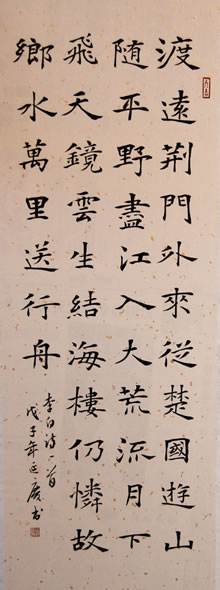 渡遠荆門外來從楚國遊山
随平野盡江入大荒流月下
飛天鏡雲生結海樓仍憐故
鄉水萬里送行舟
李白詩一首
戊子年延广书